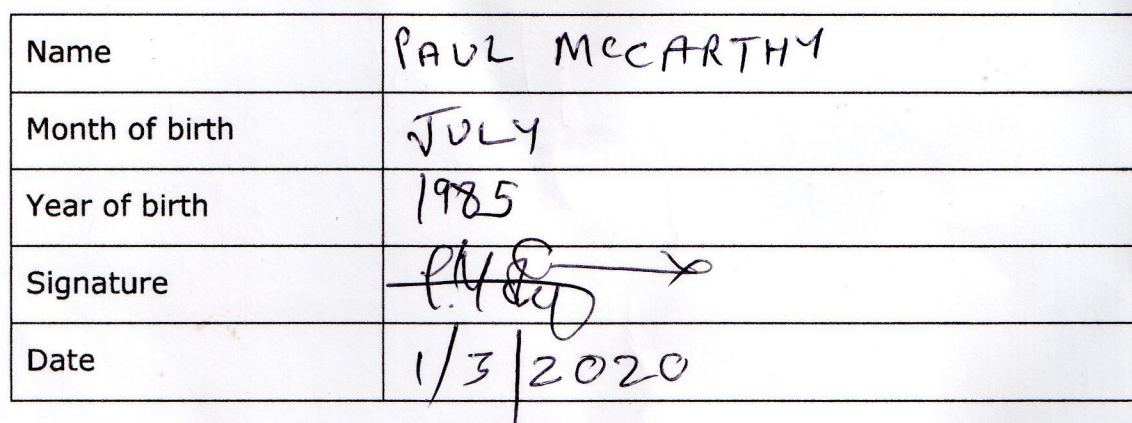 Name PAUL MCCARTHY
Month of birth JULY
Year of birth 1985
Signature
Date 1/3/2020